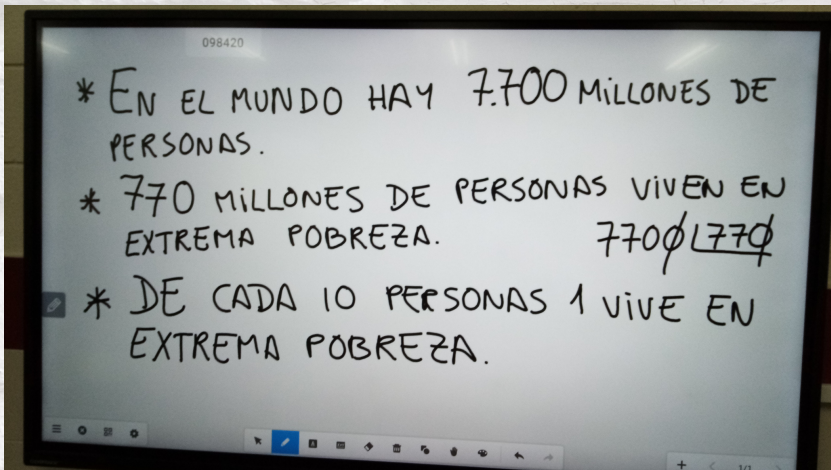 098420
* EN EL MUNDO HAY 7.700 MILLONES DE
PERSONAS.
* 770 MILLONES DE PERSONAS VIVEN EN
EXTREMA POBREZA. 7700 770
* DE CADA 10 PERSONAS 1 VIVE EN
EXTREMA POBREZA.